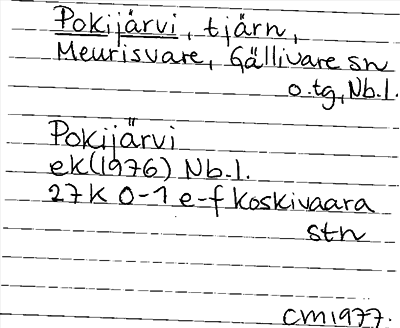 Pokijärvi, tjärn,
Meurisvare, Gällivare sn
o.tg, Nb.l.
Pokijärvi
ek(1976) Nb.l.
27K 0-1 e-f Koskivaara
stn
CM1977.